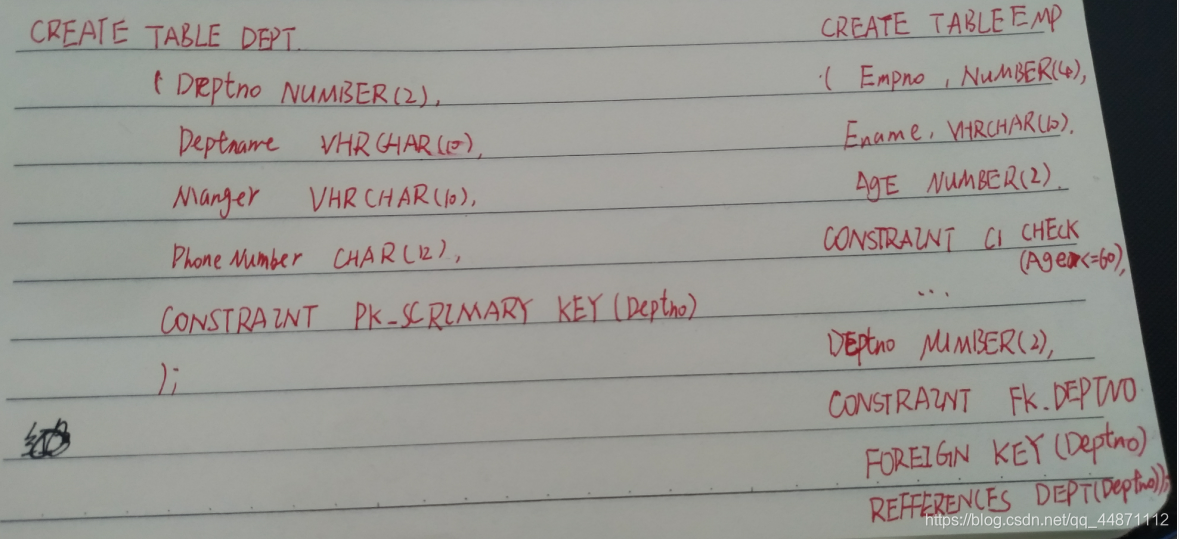 CREATE TABLE DEPT
( Deptno NUMBER(2),
Deptname VHRCHAR(10),
Manger VHRCHAR(10),
Phone Number CHAR(12),
CONSTRAINT PK_SCRIMARY KEY (Deptno)
);
CREATE TABLE EMP
( Empno , NUMBER(4),
Ename, VHRCHAR(10),
AgE NUMBER(2)
CONSTRAINT C1 CHECK
(Age<=60),
...
DEptno NUMBER(2),
CONSTRAINT FK_DEPTNO
FOREIGN KEY (Deptno)
REFFERENCES DEPT(Deptno));
https://blog.csdn.net/qq_44871112